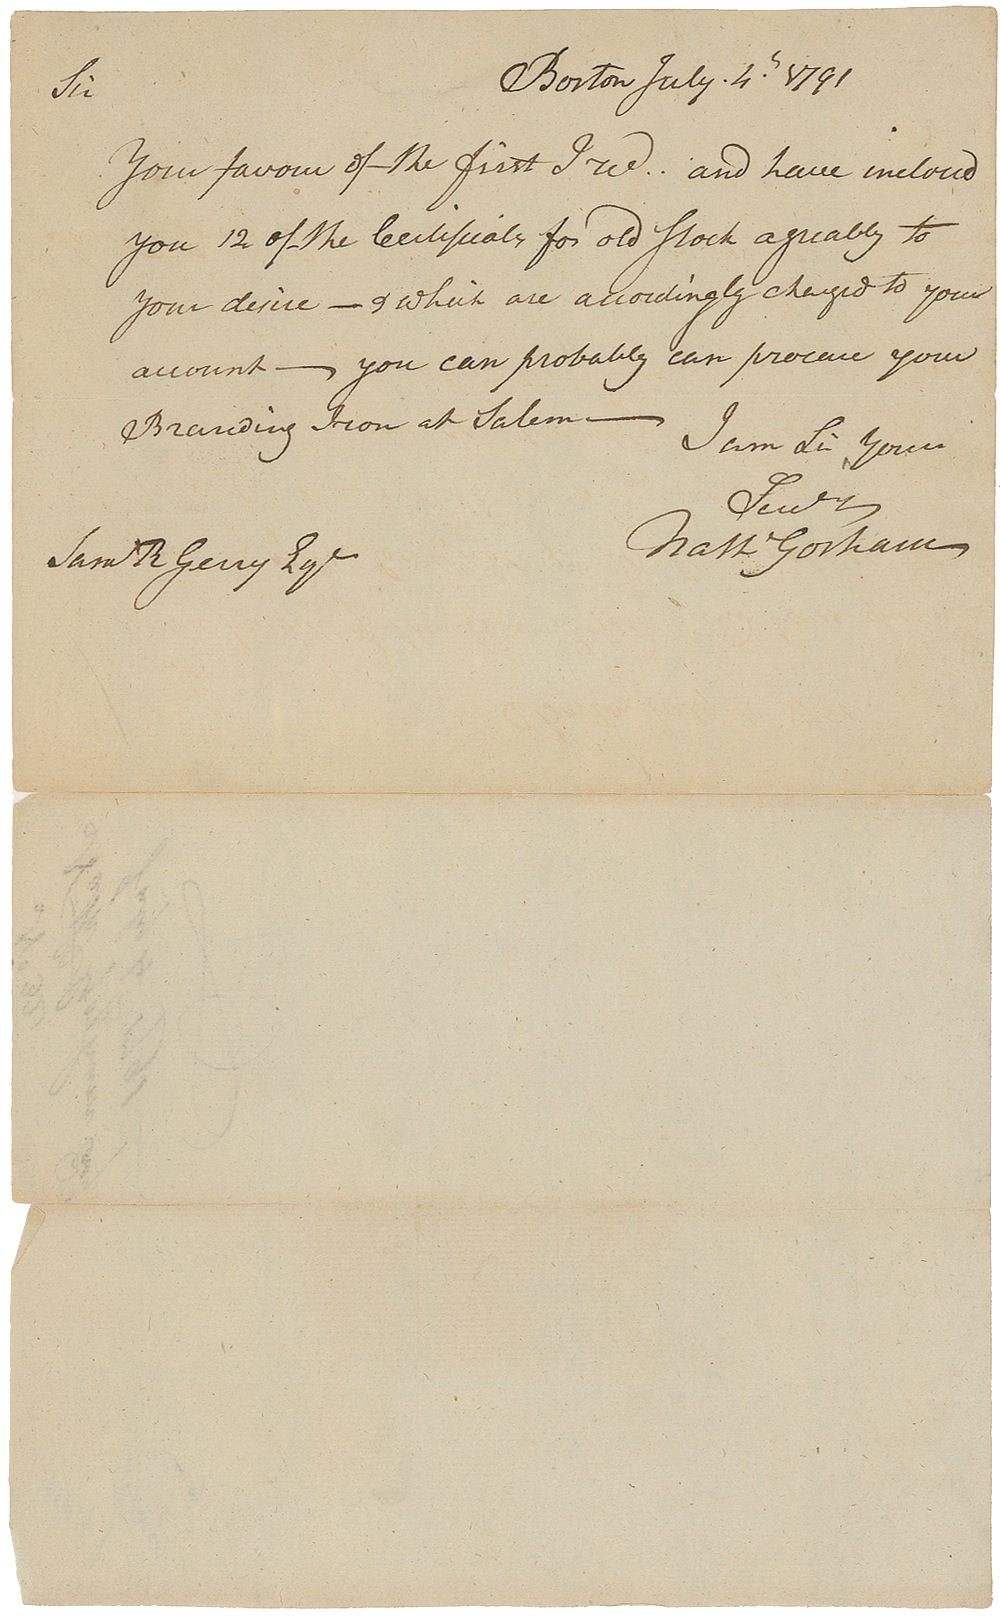 Boston July. 4.th 1791
Sir
Your favour of the first I recd.. and have inclosd
you 12 of the Certificates for old Stock agreably to
your desire — & which are accordingly chargd to your
account — you can probably can procure your
Branding Iron at Salem —
I am Sir Your
Servt
Nathl Gorham
Saml R Gerry Esqr